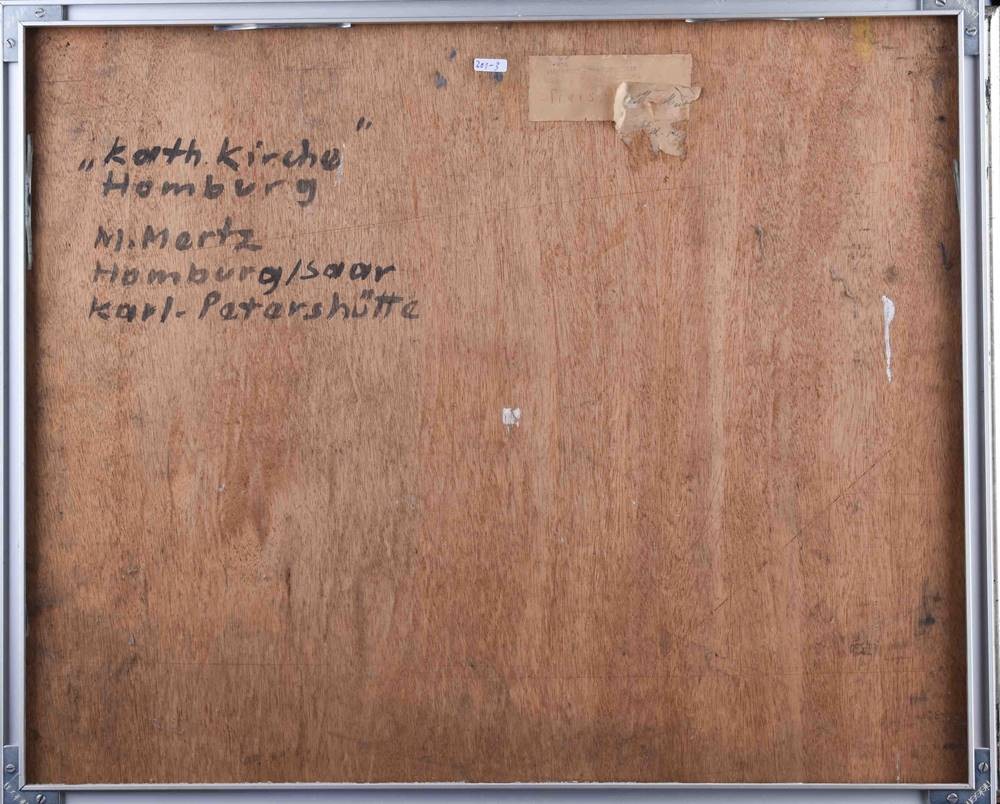 201-3
Preis
„Kath. Kirche"
Homburg
M. Mertz
Homburg/Saar
Karl-Petershütte